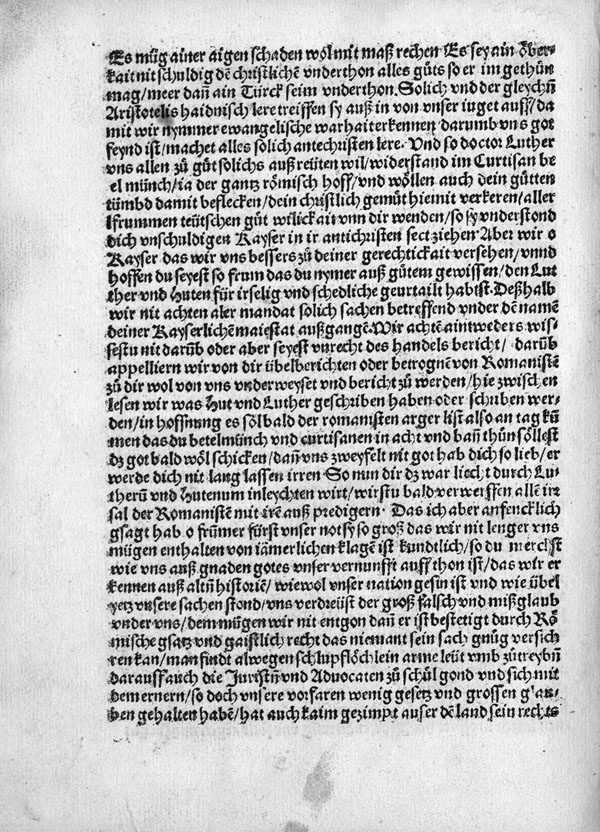 Es müg ainer aigen schaden wol mit maß rechen Es sey ain ober-
kait nit schuldig dẽ christlichẽ vnderthon alles gůts so er im gethůn
mag/meer dañ ain Türck seim vnderthon. Solich vnd der gleychñ
Aristotelis haidnisch lere treiffen sy auß in von vnser iuget auff/da
mit wir nymmer ewangelische warhait erkennen darumb vns got
feynd ist/machet alles solich antechristen lere. Vnd so doctor Luther
vns allen zů gůt solichs auß reüten wil/widerstand im Curtisan be
el münch/ia der gantz römisch hoff/vnd wöllen auch dein gůtten
tümbd damit beflecken/dein christlich gemüt hiemit verkeren/aller
lfrummen teütschen gůt wilickait vnn dir wenden/so sy vnderstond
dich vnschuldigen Kayser in ir antichristen sect ziehen Aber wir o
Kayser das wir vns bessers zů deiner gerechtickait versehen/vnnd
hoffen du seyest so frum das du nymer auß gůtem gewissen/den Lut
ther vnd Huten für irselig vnd schedliche geurtailt habtst. Deßhalb
wir nit achten aler mandat solich sachen betreffend vnder dẽ namẽ
deiner Kayserlichẽ maiestat außgangẽ. Wir achtẽ aintweders wis-
sestu nit darũb oder aber seyest vnrecht des handels bericht/ darũb
appellieren wir von dir übelberichten oder betrognẽ von Romanistẽ
zů dir wol von vns vnderweyset vnd bericht zů werden/hie zwischen
lesen wir was Hut vnd Luther geschriben haben oder schriben wer-
den/in hoffnung es söl bald der romanisten arger list also an tag kũ
men das du betelmünch vnd curtisanen in acht vnd bañ thün söllest
dz got bald wöl schicken/dañ vns zweyfelt nit got hab dich so lieb/er
werde dich nit lang lassen irren So nun dir dz war liecht durch Lu-
therũ vnd Hutenum inleychten wirt/wirstu bald verwerffen allẽ irr
sal der Romanistẽ mit irẽ auß predigern. Das ich aber anfencklich
gsagt hab o frũmer fürst vnser not sy so groß das wir nit lenger vns
mügen enthalten von iämerlichen klagẽ ist kundtlich/so du merckst
wie vns auß gnaden gotes vnser vernunfft auff thon ist/das wir er
kennen auß altñ historiẽ/ wiewol vnser nation gesin ist vnd wie übel
yetz vnsere sachen stond/vns verdreüst der groß falsch vnd mißglaub
vnder vns/dem mügen wir nit entgon dañ er ist bestetigt durch Rö
mische gsatz vnd gaistlich recht das niemant sein sach gnůg versich
ren kan/man findt alwegen schlupflöchlein arme leüt vmb zůtreybñ
darauff auch die Juristñ vnd Aduocaten zů schůl gond vnd sich mit
dem ernern/so doch vnsere vorfaren wenig gesetz vnd grossen glau-
ben gehalten habẽ/hat auch kaim gezimpt auser dẽ land sein rechts